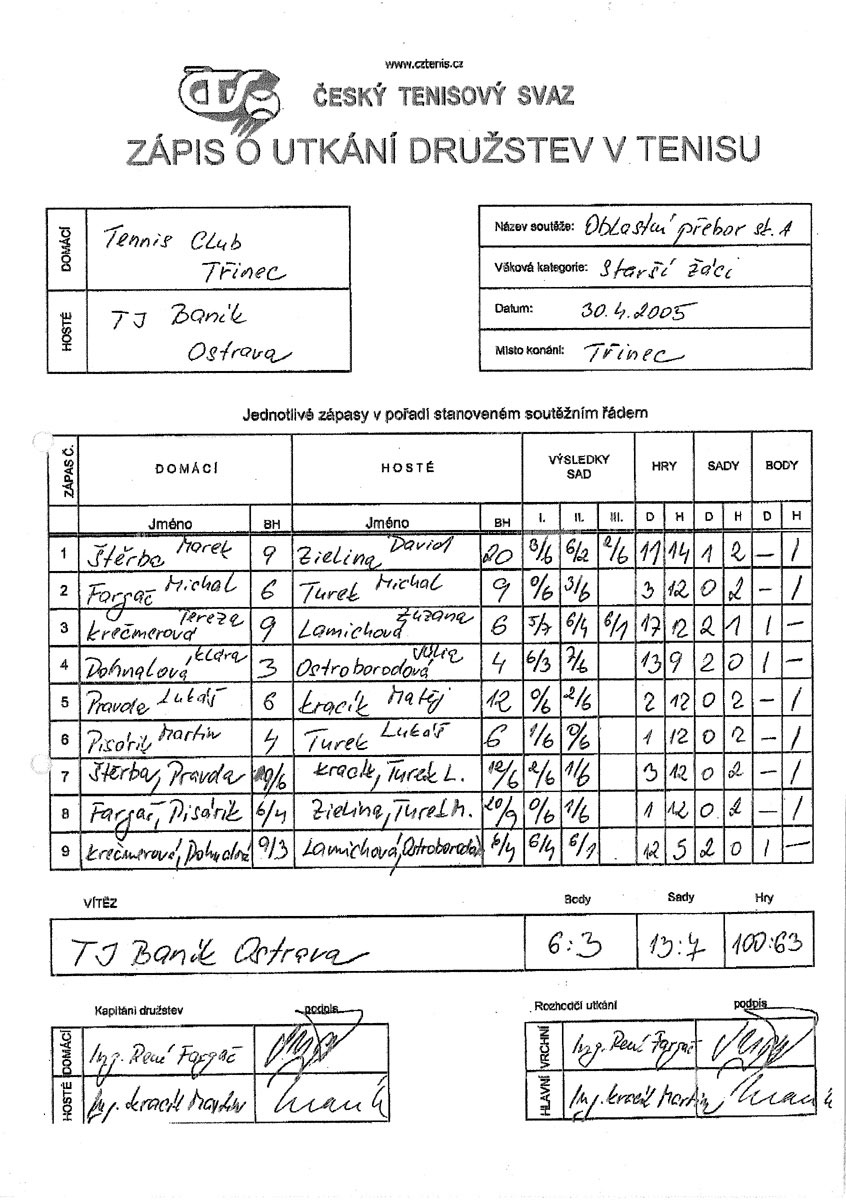 www.cztenis.cz
ČTS ČESKÝ TENISOVÝ SVAZ
ZÁPIS O UTKÁNÍ DRUŽSTEV V TENISU
DOMÁCÍ Tennis Club Třinec
HOSTÉ TJ Baník Ostrava
Název soutěže: Oblastní přebor st. A
Věková kategorie: Starší žáci
Datum: 30.4.2005
Místo konání: Třinec
Jednotlivé zápasy v pořadí stanoveném soutěžním řádem
ZÁPAS Č. DOMÁCÍ HOSTÉ VÝSLEDKY SAD HRY SADY BODY
Jméno BH Jméno BH I. II. III. D H D H D H
1 Štěrba Marek 9 Zielina David 20 3/6 6/2 2/6 11 14 1 2 – 1
2 Fargač Michal 6 Turek Michal 9 0/6 3/6 3 12 0 2 – 1
3 Krečmerová Tereza 9 Lamichová Zuzana 6 5/7 6/4 6/1 17 12 2 1 1 –
4 Dohnalová Klára 3 Ostroborodová Júlia 4 6/3 7/6 13 9 2 0 1 –
5 Pravda Lukáš 6 Kracík Matěj 12 0/6 2/6 2 12 0 2 – 1
6 Pisárik Martin 4 Turek Lukáš 6 1/6 0/6 1 12 0 2 – 1
7 Štěrba, Pravda 9/6 Kracík, Turek L. 12/6 2/6 1/6 3 12 0 2 – 1
8 Fargač, Pisárik 6/4 Zielina, Turek M. 20/9 0/6 1/6 1 12 0 2 – 1
9 Krečmerová, Dohnalová 9/3 Lamichová, Ostroborodá 6/4 6/4 6/1 12 5 2 0 1 –
VÍTĚZ Body Sady Hry
TJ Baník Ostrava 6:3 13:7 100:63
Kapitáni družstev podpis
DOMÁCÍ Ing. René Fargač
HOSTÉ Ing. Kracík Martin
Rozhodčí utkání podpis
VRCHNÍ Ing. René Fargač
HLAVNÍ Ing. Kracík Martin